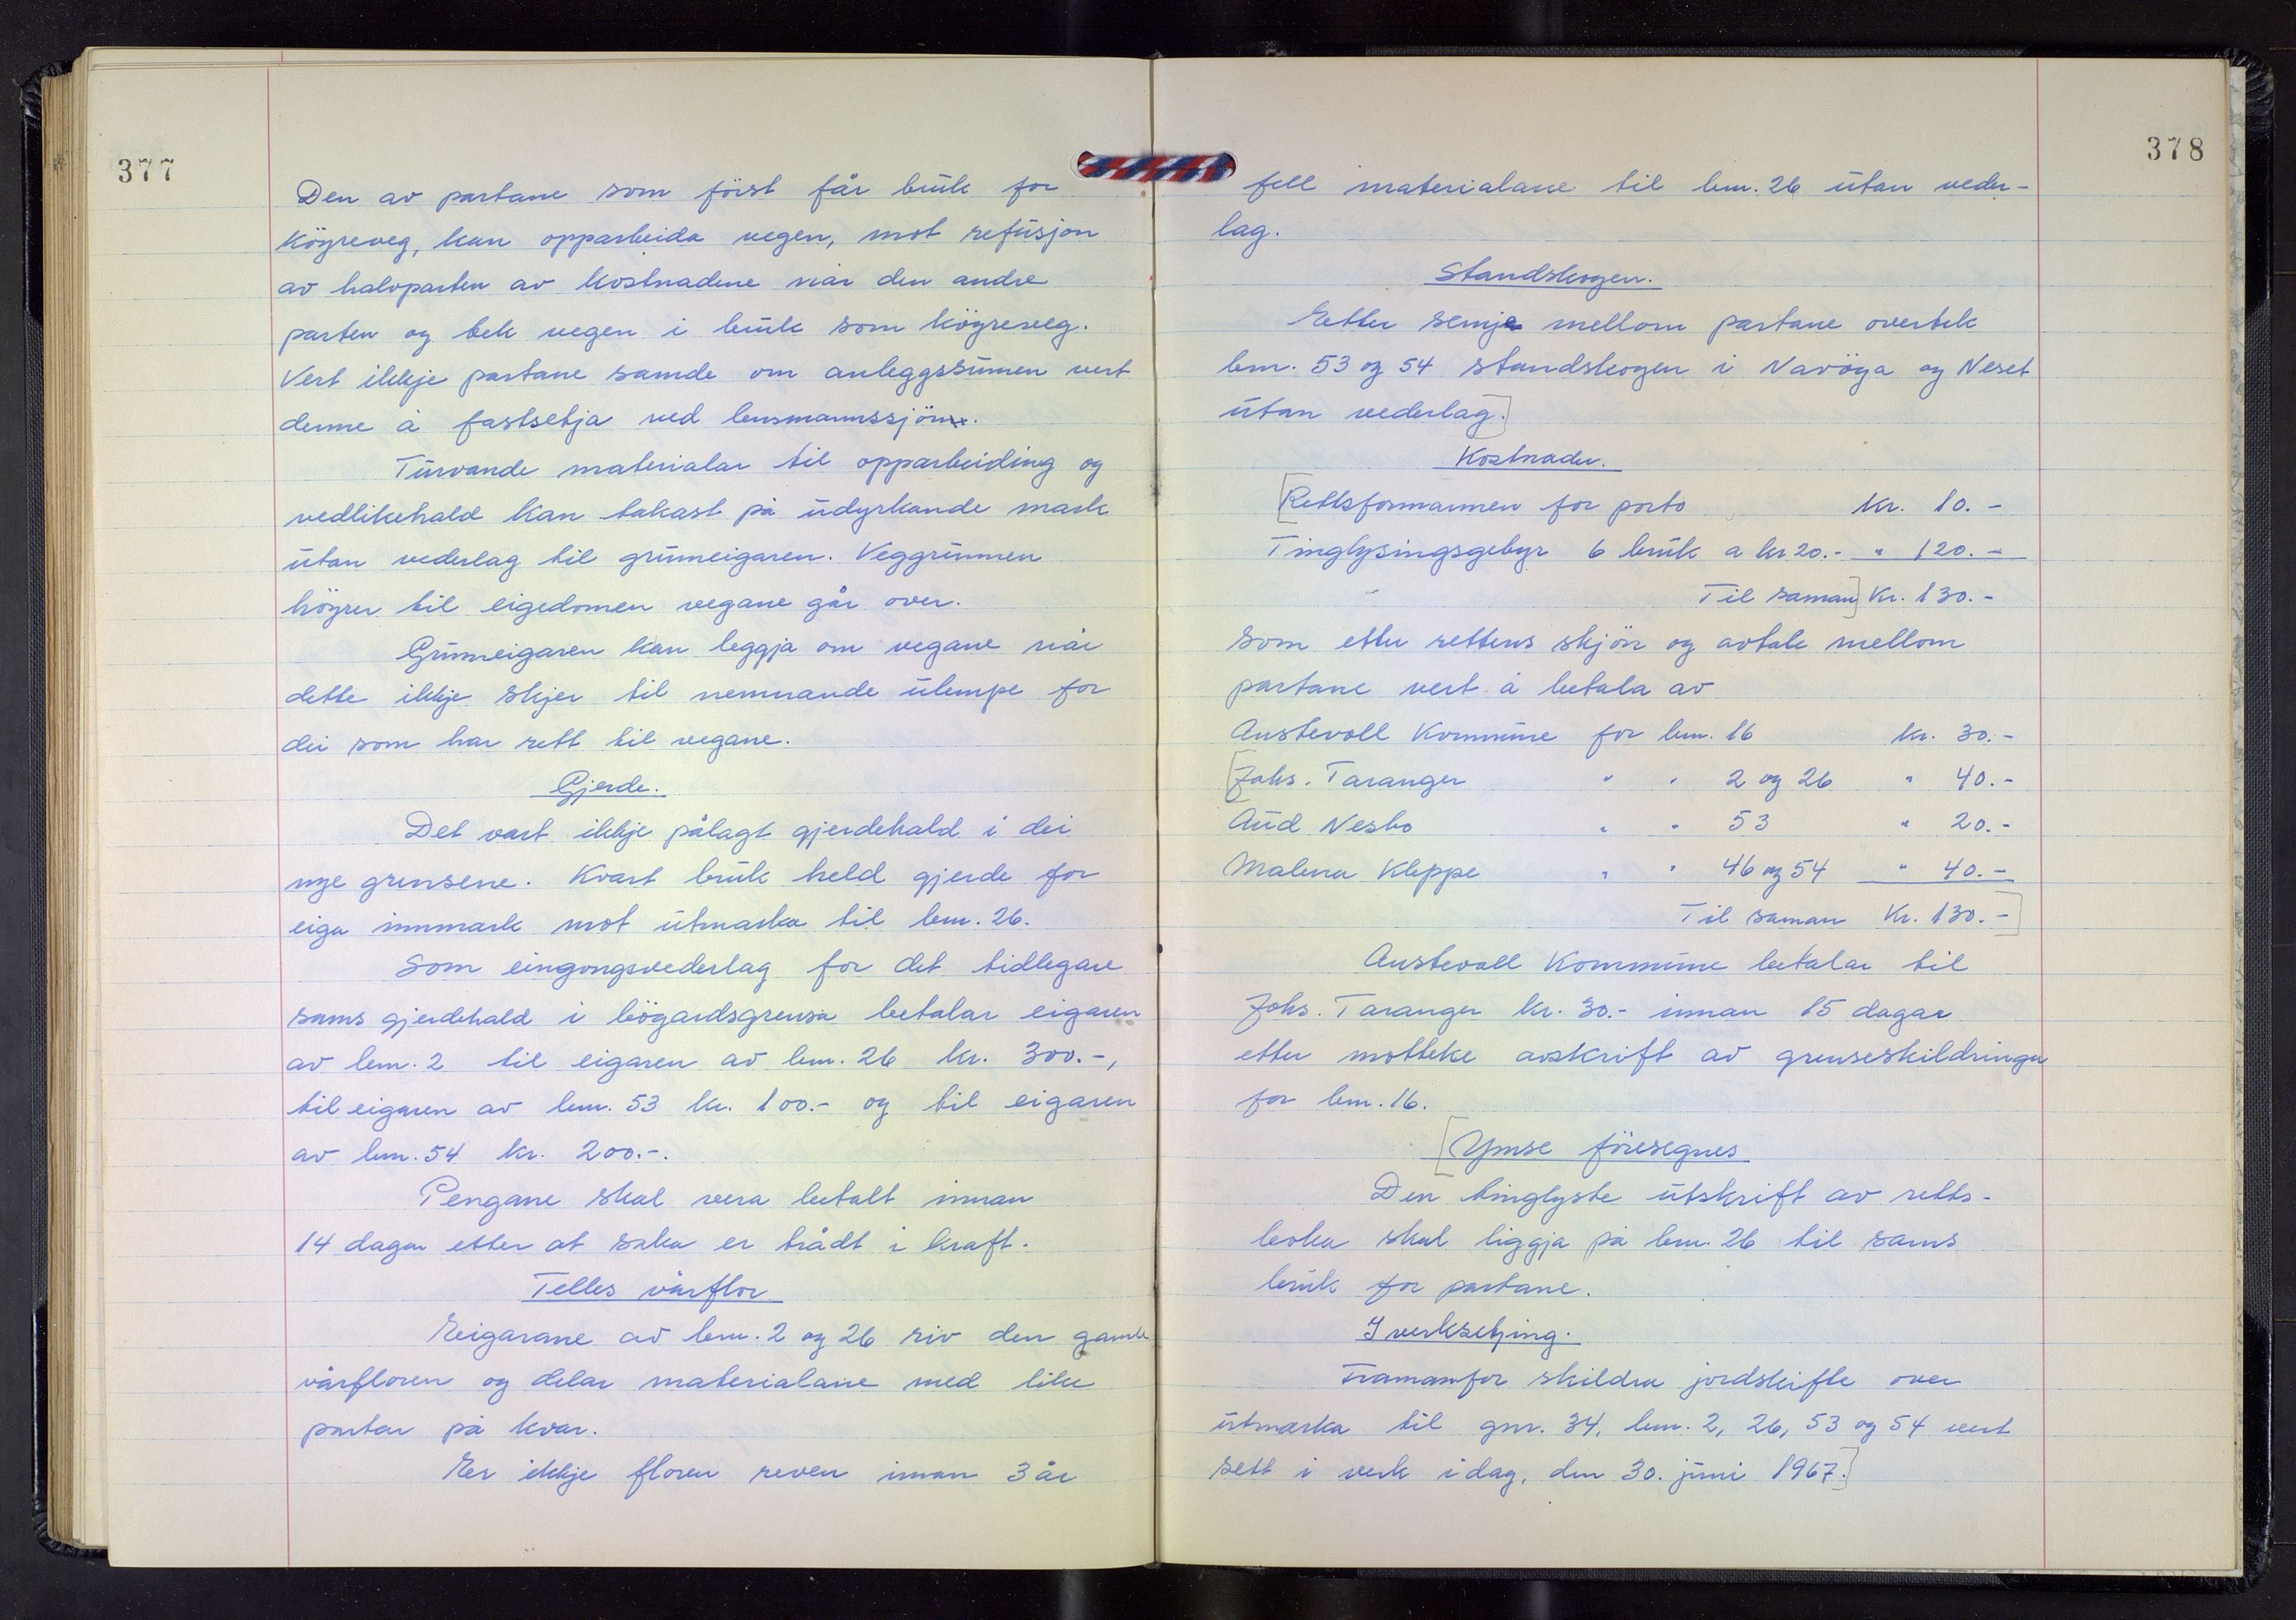 377
Den av partane som först får bruk for
köyreveg, kan opparbeida vegen, mot refusjon
av halvparten av kostnadene når den andre
parten og tek vegen i bruk som köyreveg.
Vert ikkje partane samde om anleggssumen vert
denne å fastsetja ved lensmannssjön.
Turvande materialar til opparbeiding og
vedlikehald kan takast på udyrkande mark
utan vederlag til grunneigaren. Veggrunnen
höyrer til eigedomen vegane går over.
Grunneigaren kan leggja om vegane når
dette ikkje skjer til nemnande ulempe for
dei som har rett til vegane.
Gjerde.
Det vart ikkje pålagt gjerdehald i dei
nye grensene. Kvart bruk held gjerde for
eiga innmark mot utmarka til bnr. 26.
Som eingongsvederlag for det tidlegare
sams gjerdehald i bögardsgrensa betalar eigaren
av bnr. 2 til eigaren av bnr. 26 kr. 300.-,
til eigaren av bnr. 53 kr. 100.- og til eigaren
av bnr. 54 kr. 200.-.
Pengane skal vera betalt innan
14 dagar etter at saka er trådt i kraft.
Felles vårflor
Eigarane av bnr. 2 og 26 riv den gamle
vårfloren og delar materialane med like
partar på kvar.
Er ikkje floren reven innan 3 år
378
fell materialane til bnr. 26 utan veder-
lag.
Standskogen.
Etter semje mellom partane overtek
bnr. 53 og 54 standskogen i Navöya og Neset
utan vederlag.]
Kostnader.
[Rettsformannen for porto kr. 10.-
Tinglysingsgebyr 6 bruk a kr 20.- " 120.-
Til saman] Kr. 130.-
som etter rettens skjön og avtale mellom
partane vert å betala av
Austevoll Kommune for bnr. 16 kr. 30.-
[Johs. Taranger " " 2 og 26 " 40.-
Aud Nesbo " " 53 " 20.-
Malena Kleppe " " 46 og 54 " 40.-
Til saman Kr. 130.-]
Austevoll Kommune betalar til
Johs. Taranger kr. 30.- innan 15 dagar
etter motteke avskrift av grenseskildringa
for bnr. 16.
[Ymse föresegnes
Den tinglyste utskrift av retts-
boka skal liggja på bnr. 26 til sams
bruk for partane.
Iverksetjing.
Framanfor skildra jordskifte over
utmarka til gnr. 34, bnr. 2, 26, 53 og 54 vert
sett i verk idag, den 30. juni 1967.]